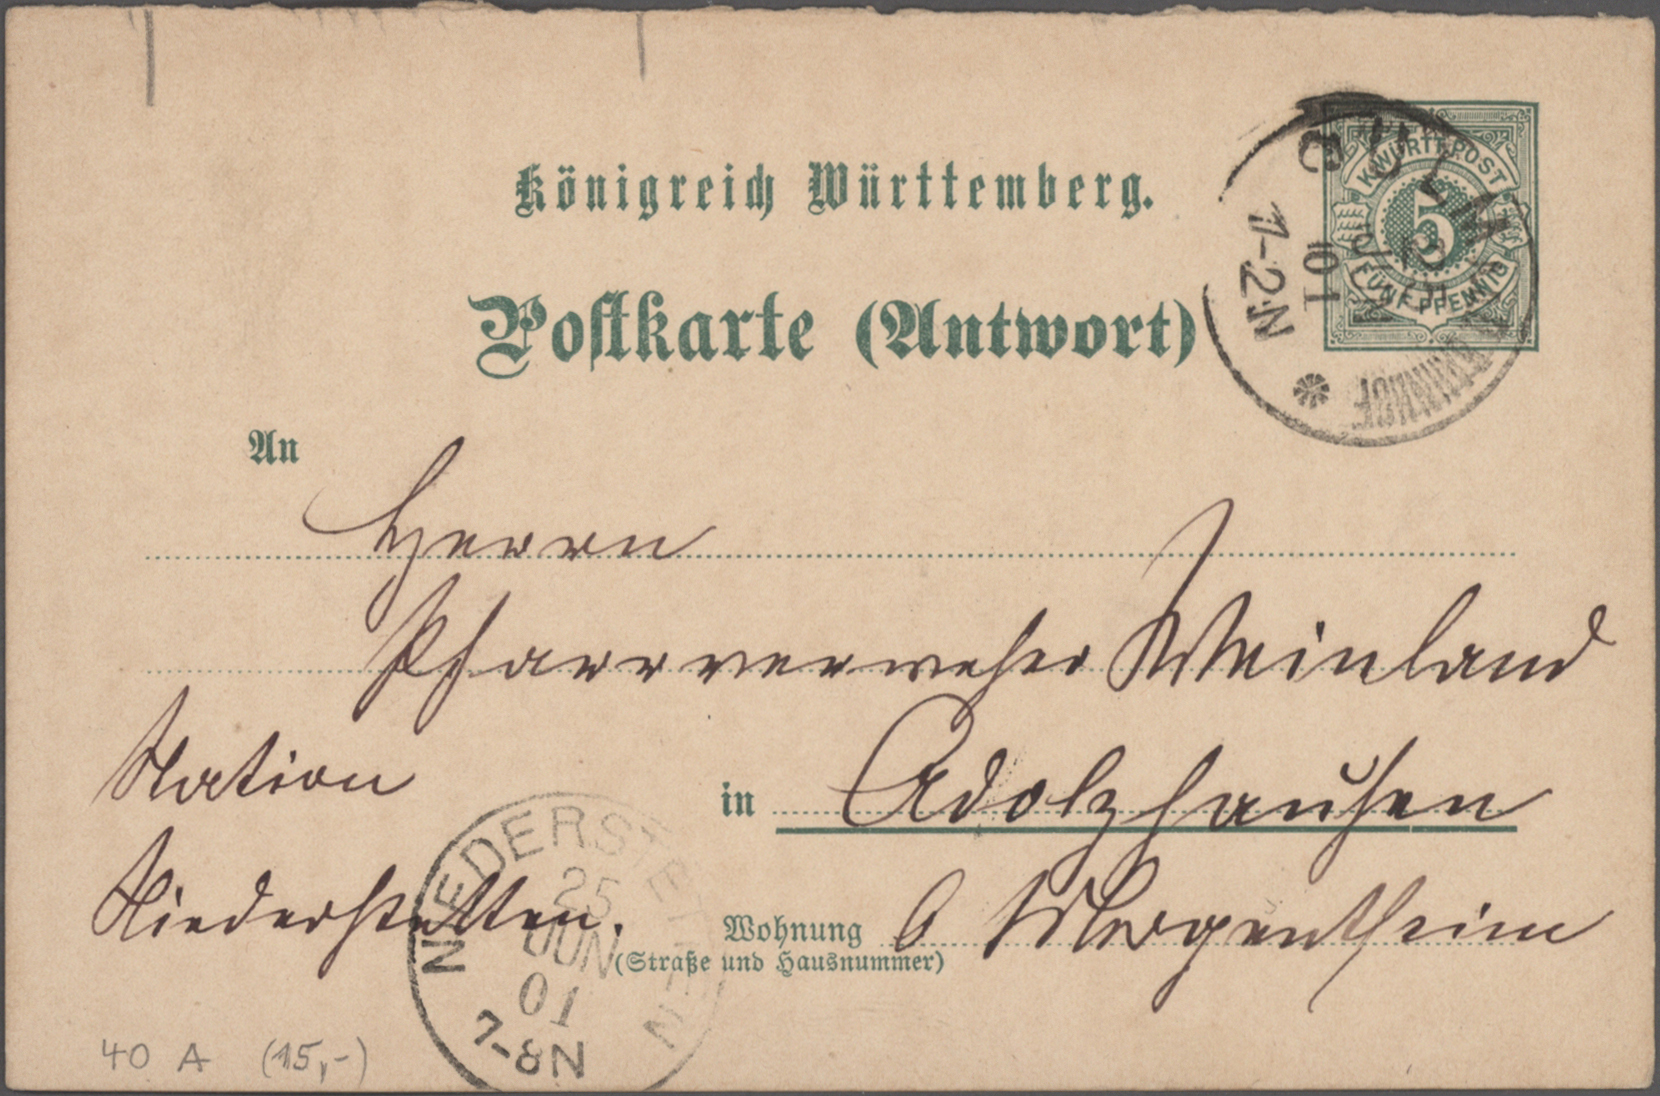 Königreich Württemberg.
Postkarte (Antwort)
K. WÜRTT. POST
5
FÜNF PFENNIG
ULM
BAHNHOF
1-2N
An
Herrn
Pfarrverweser Weinland
Station
in Adolzhausen
Niederstetten.
Wohnung
(Straße und Hausnummer)
Mergentheim
NIEDERSTETTEN
25
JUN
01
7-8N
40 A (15,-)